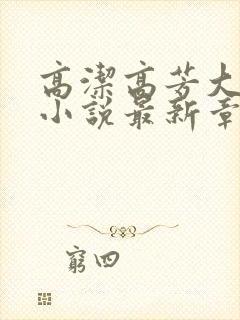 高潔高芳大
小說最新章
窮四